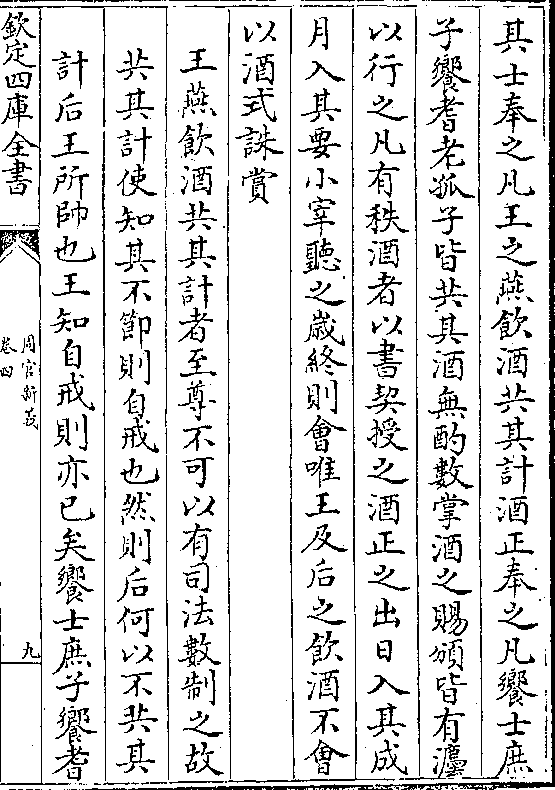 其士奉之凡王之燕飲酒共其計酒正奉之凡饗士庶
子饗耆老孤子皆共其酒無酌數掌酒之賜頒皆有灋
以行之凡有秩酒者以書契授之酒正之出日入其成
月入其要小宰聽之歲終則會唯王及后之飲酒不會
以酒式誅賞
王燕飲酒共其計者至尊不可以有司法數制之故
共其計使知其不節則自戒也然則后何以不共其
計后王所帥也王知自戒則亦已矣饗士庶子饗耆
欽定四庫全書
周官新義
卷四
九